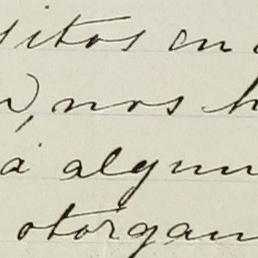 sitos en
, nos h
a algun
otorgan